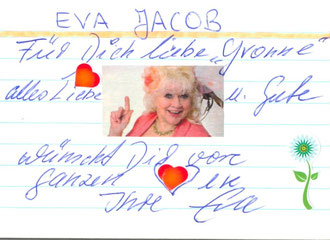 EVA JACOB
Für Dich liebe „Yvonne"
alles Liebe u. Gute
wünscht Dir von
ganzen
Ihre Eva